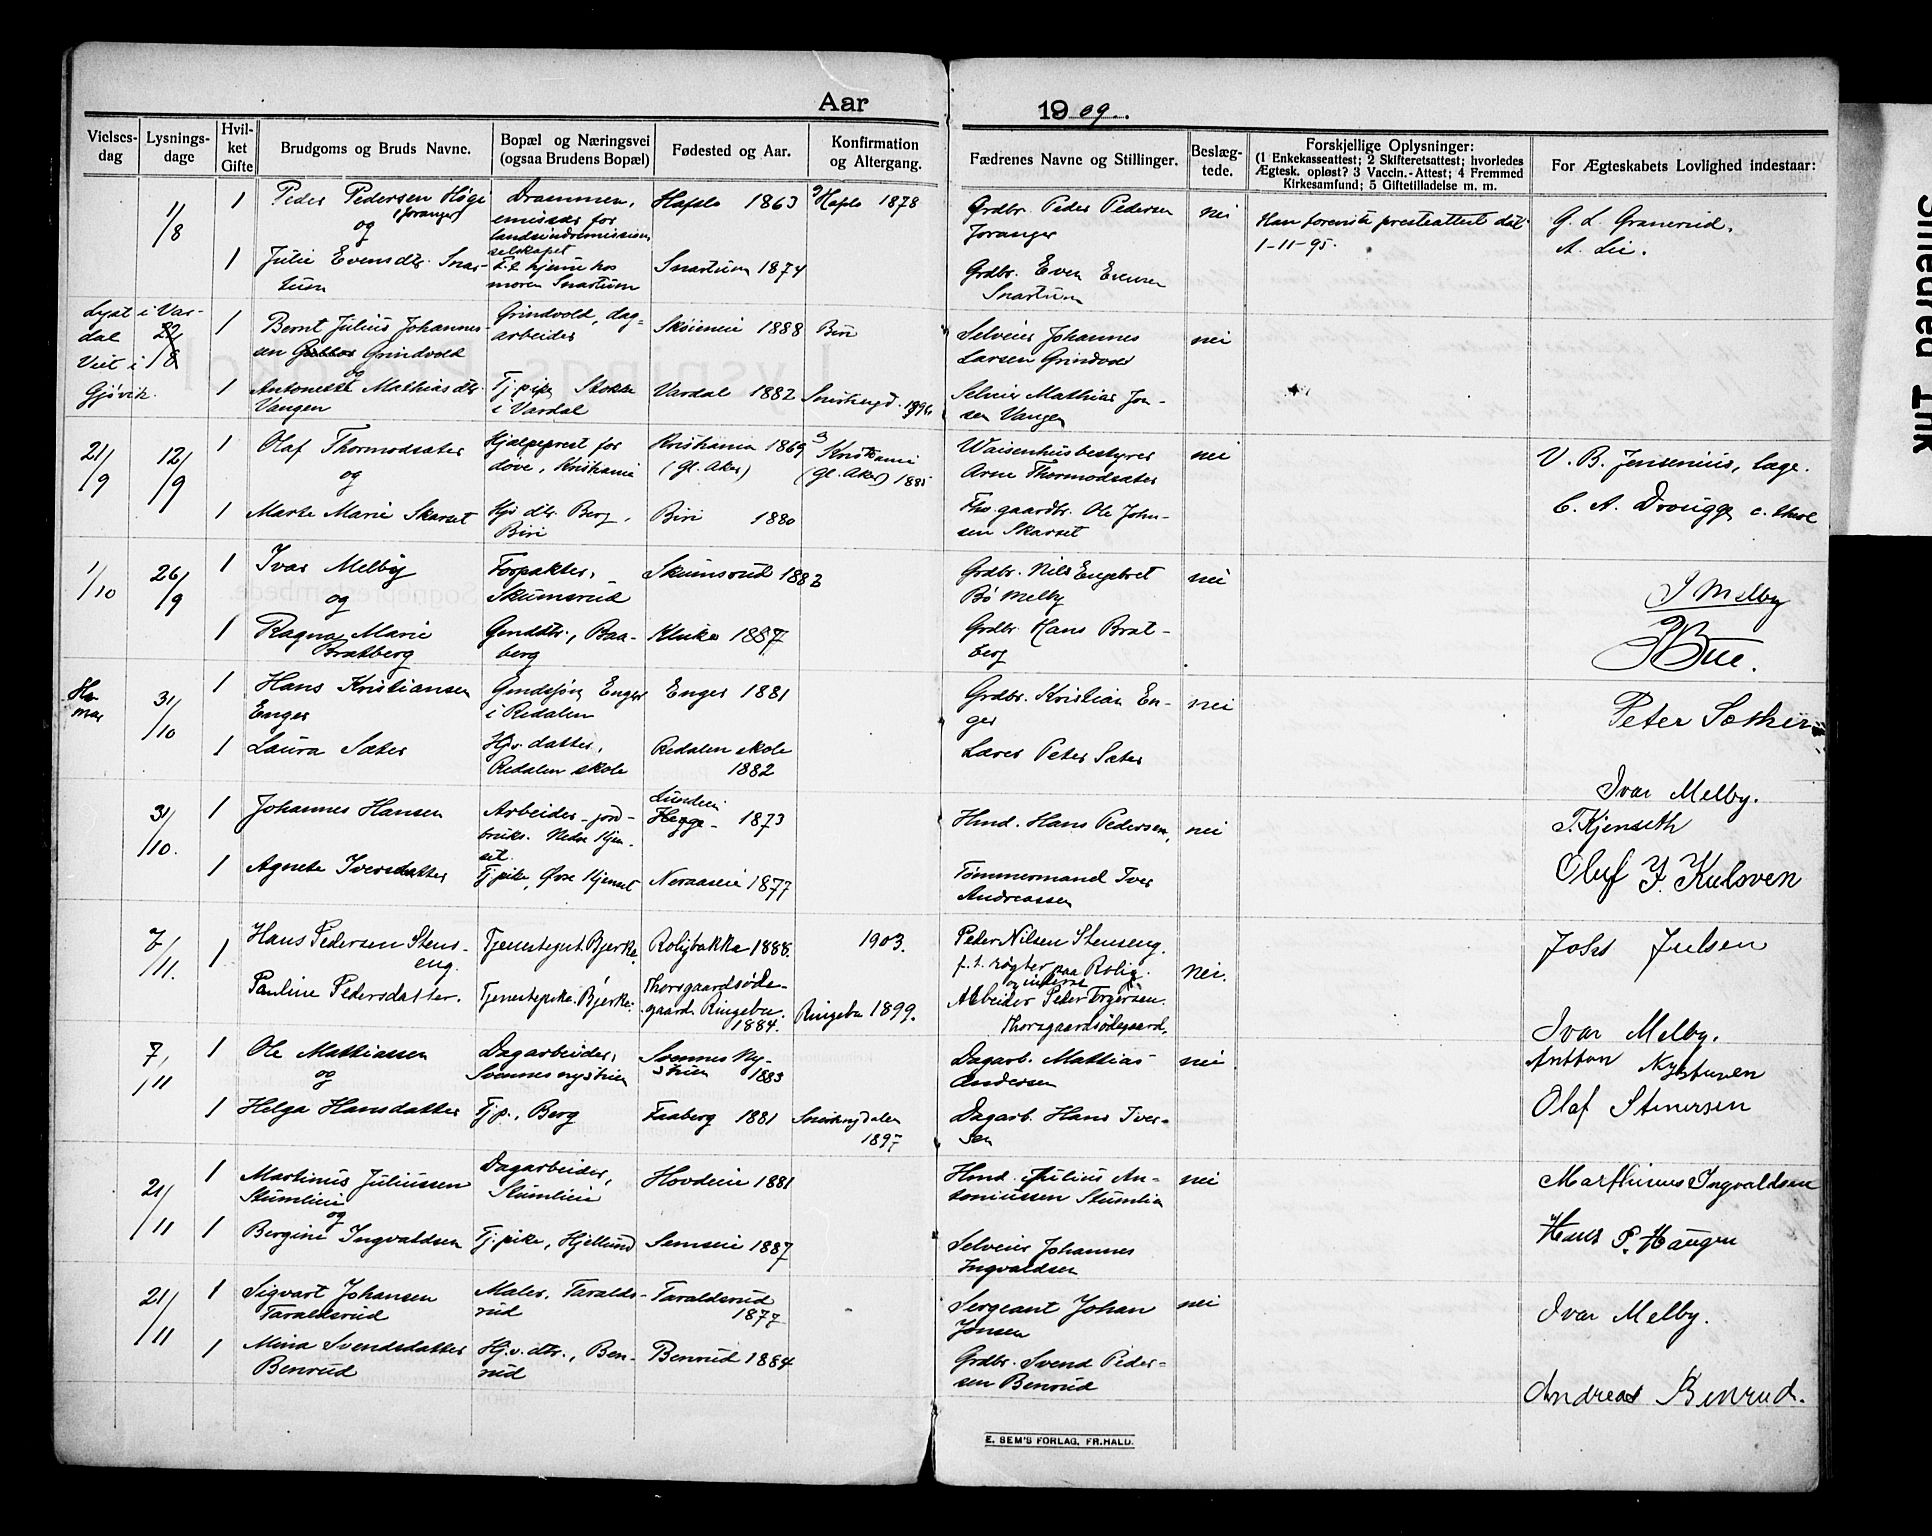 Aar 1909.
Vielses-dag | Lysnings-dage | Hvil-ket Gifte | Brudgoms og Bruds Navne. | Bopæl og Næringsvei (ogsaa Brudens Bopæl) | Fødested og Aar. | Konfirmation og Altergang. | Fædrenes Navne og Stillinger. | Beslæg-tede. | Forskjellige Oplysninger: (1 Enkekasseattest; 2 Skifteretsattest; hvorledes Ægtesk. opløst? 3 Vaccin.-Attest; 4 Fremmed Kirkesamfund; 5 Giftetilladelse m. m. | For Ægteskabets Lovlighed indestaar:
1/8 | 1 | Peder Pedersen Høgi (Joranger) og | Drammen, emissær for landsindremissionsselskapet | Hafslo 1863 | Hafslo 1878 | Grdbr. Peder Pedersen Joranger | nei | Han forevist presteattest dat. 1-11-95. | G. L. Granerud. A. Lie.
1 | Julie Evensdtr. Snartum | F.t. hjeme hos moren Snartum | Snartum 1874 | Grdbr. Even Evensen Snartum
Lyst i Vardal Viet i Gjøvik. | 22/8 | 1 | Bernt Julius Johannessen Grindvold og | Grindvold, dagarbeider | Skiemeie 1888 | Biri | Selveier Johannes Larsen Grindvold | nei
1 | Antonette Mathiasdtr. Vangen | Tj.pike, Stokke i Vardal | Vardal 1882 | Selveier Mathias Jonsen Vangen
21/9 | 12/9 | 1 | Olaf Thormodsæter og | Hjælpeprest for døve, Kristiania | Kristiania 1869 (gl. Aker) | Kristiania (gl. Aker) 1885 | Waisenhusbestyrer Arne Thormodsæter | nei | V. B. Jensenius, læge.
1 | Marte Marie Skarset | Hjv dtr. Berg, Biri | Biri 1880 | Fhv gaardbr. Ole Johnsen Skarset | C. A. Drougge
1/10 | 26/9 | 1 | Ivar Melby og | Forpakter, Skumsrud | Skumsrud 1882 | Grdbr. Nils Engebret Bø Melby | nei | I Melby
1 | Ragna Marie Bratberg | Gmddtr., Baaberg | Kluke 1887 | Grdbr. Hans Bratberg
Hamar | 31/10 | 1 | Hans Kristiansen Enger | Gmdssøn Enger i Redalen | Enger 1881 | Grdbr. Kristian Enger | nei | Peter Sæther
1 | Laura Sæter | Hjv. datter, Redalen skole | Redalen skole 1882 | Lærer Peter Sæter
31/10. | 1 | Johannes Hansen | Arbeider - jordbruks. Nedre Kjenset. | Lundeie Hegge - 1873 | Hmd. Hans Pedersen, | nei | Ivar Melby. T. Kjenseth
1 | Agnete Iversdatter | Tj.pike, Øvre Kjenset | Neraaseie 1877 | Tømmermand Iver Andreassen | Oluf J. Kulsven
7/11. | 1 | Hans Pedersen Stenseng. | Tjenestegut. Bjerke. | Roligbakka 1888. | 1903. | Peder Nilsen Stenseng. f.t. røgter paa Rolig. | Nei. | Johs Julsen
Pauline Pedersdatter. | Tjenestepike. Bjerke. | Thorsgaardsødegaard. Ringebu. 1884. | Ringebu 1899. | Arbeider Peder Torgersen. Thorsgaardsødegaard.
7/11 | 1 | Ole Mathiassen og | Dagarbeider, Svennesnystuen | Svennes Nystuen 1883 | Dagarb. Mathias Andersen | nei | Ivar Melby. Antton Nystuven
1 | Helga Hansdatter | Tj.p., Berg | Faaberg 1881 | Snertingdalen 1897 | Dagarb. Hans Iversen | Olaf Stenersen
21/11 | 1 | Martinus Juliussen Stumlieie og | Dagarbeider, Stumlieie | Hovdeie 1881 | Hmd. Julius Antoniussen Stumlie | nei | Marthinus Ingvaldsen
1 | Bergine Ingvaldsen | Tj.pike, Hjellund | Semseie 1887 | Selveier Johannes Ingvaldsen | Hans P. Haugen
21/11 | 1 | Sigvart Johansen Taraldsrud | Maler, Taraldsrud | Taraldsrud 1877 | Sergeant Johan Jonsen | nei | Ivar Melby.
1 | Mina Svendsdatter Benrud | Hjv. dtr., Benrud | Benrud 1884 | Grdbr. Svend Pedersen Benrud | Andreas Benrud.
E. SEM'S FORLAG, FR.HALD.
Smeared Ink